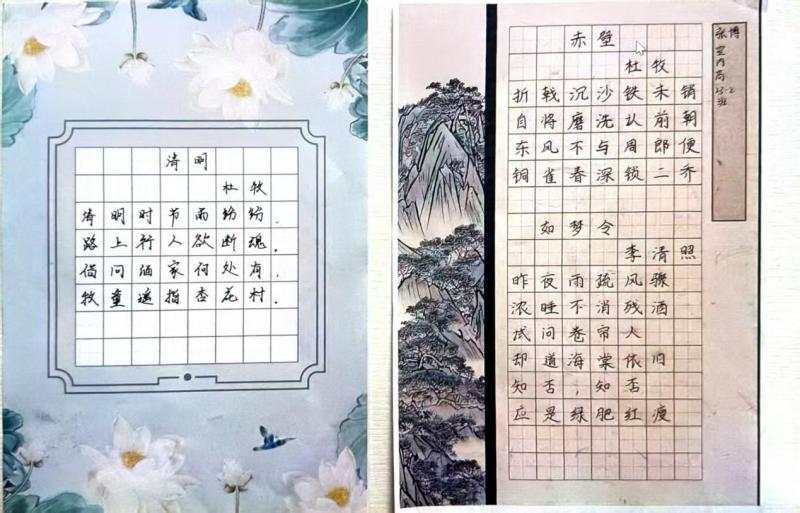 清明
杜牧
清明时节雨纷纷.
路上行人欲断魂.
借问酒家何处有.
牧童遥指杏花村.
赤壁
杜牧
折戟沉沙铁未销
自将磨洗认前朝
东风不与周郎便
铜雀春深锁二乔
如梦令
李清照
昨夜雨疏风骤
浓睡不消残酒
试问卷帘人
却道海棠依旧
知否,知否
应是绿肥红瘦
张博
室内高
23-2
班